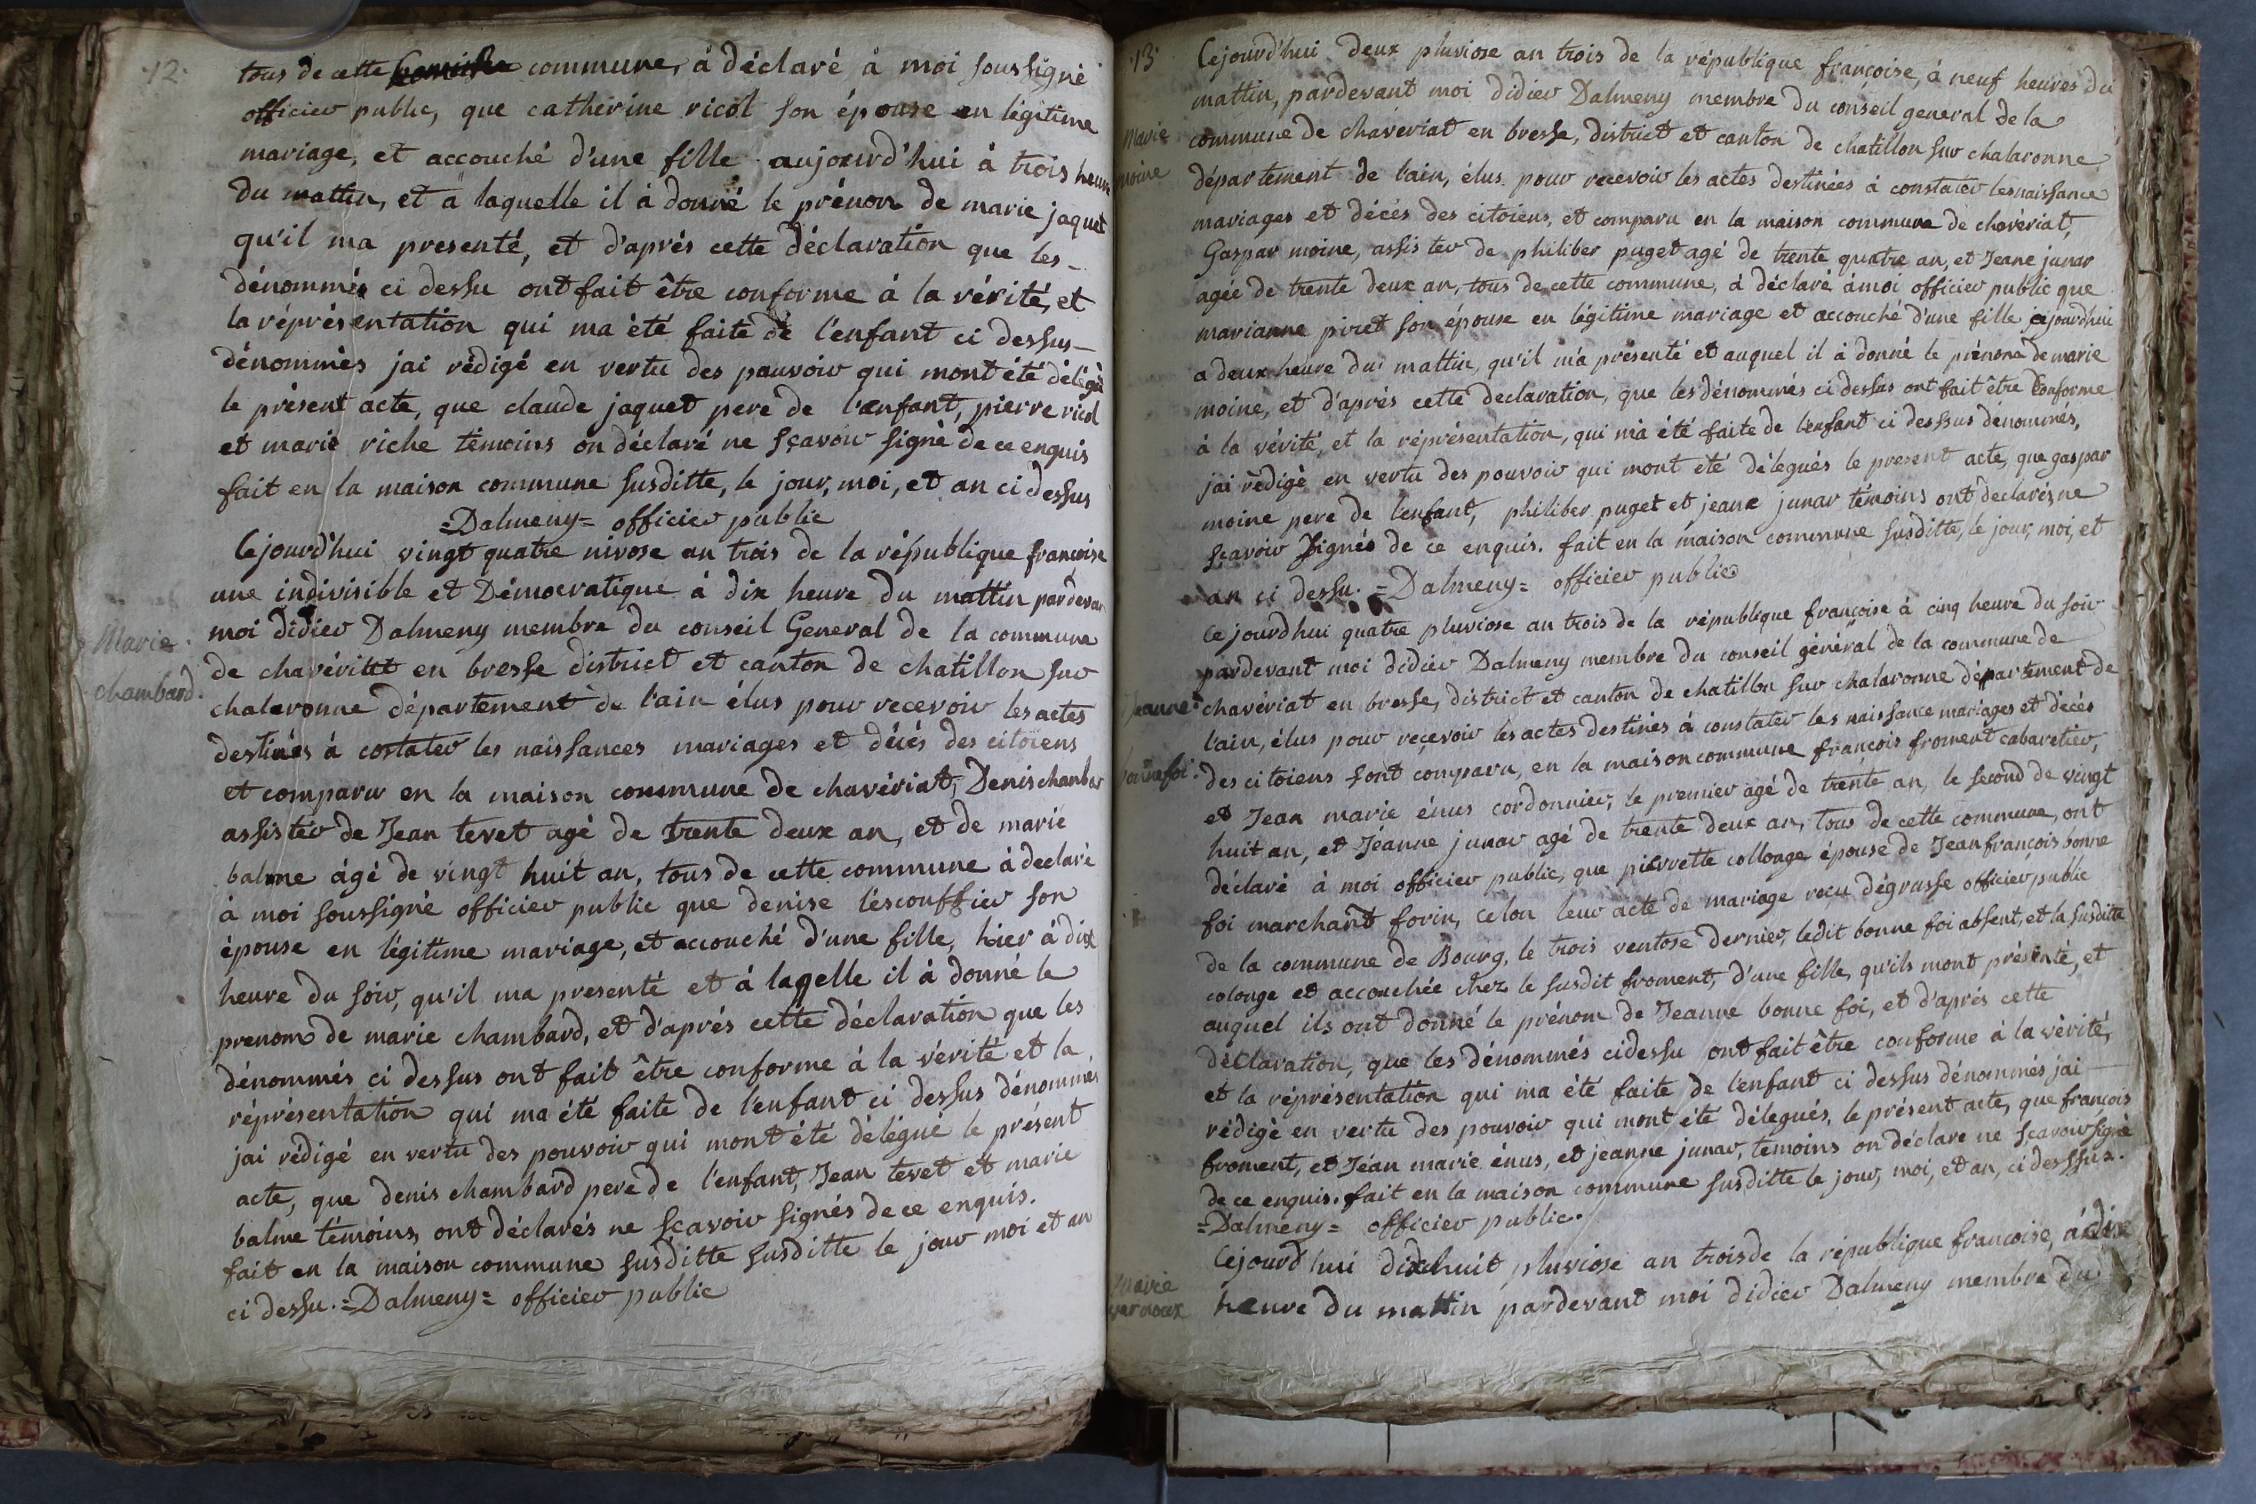 .12.
tous de cette commune, à déclaré à moi soussigné
officier public, que catherine ricol son épouse en légitime
mariage, et accouché d'une fille aujourd'hui à trois heure
du mattin, et a laquelle il à donné le prénom de marie jaquet
qu'il ma presenté, et d'aprés cette déclaration que les
dénommés ci dessu ont fait être conforme à la vérité, et
la réprésentation qui ma été faite de l'enfant ci dessus
dénommés jai rédigé en vertu des pouvoir qui mont été délégué
le présent acte, que claude jaquet pere de l'enfant, pierre ricol
et marie riche témoins on déclaré ne sçavoir signé de ce enquis
fait en la maison commune susditte, le jour, moi, et an ci dessus
=Dalmeny= officier public
Marie
chambard.
Cejourd'hui vingt quatre nivose an trois de la république françoise
une indivisible et Démocratique à dix heure du mattin pardevan
moi didier Dalmeny membre du conseil General de la commune
de chavériat en bresse district et canton de chatillon sur
chalaronne département de l'ain élus pour recevoir les actes
destinés à costater les naissances mariages et décés des citoiens
et comparu en la maison commune de chavériat, Denis chambar
assister de Jean tevet agé de trente deux an, et de marie
balme âgé de vingt huit an, tous de cette commune à declaré
à moi soussigné officier public que denise lescouffier son
épouse en légitime mariage, et accouché d'une fille, hier à dix
heure du soir, qu'il ma presenté et à laqelle il à donné le
prenom de marie chambard, et d'aprés cette déclaration que les
dénommés ci dessus ont fait être conforme à la vérité et la
réprésentation qui ma été faite de l'enfant ci dessus dénommés
jai rédigé en vertu des pouvoir qui mont été délégué le présent
acte, que denis chambard pere de l'enfant, Jean tevet et marie
balme temoins, ont déclarés ne sçavoir signés de ce enquis.
fait en la maison commune susditte susditte le jour moi et an
ci dessu. =Dalmeny= officier public
.13.
Marie
moine
Cejourd'hui deux pluviose an trois de la république françoise, à neuf heures du
mattin, pardevant moi didier Dalmeny membre du conseil general de la
commune de chaveriat en bresse, district et canton de chatillon sur chalaronne
département de l'ain, élus pour recevoir les actes destinées à constater les naissance
mariages et décés des citoiens, et comparu en la maison commune de chavériat,
Gaspar moine, assister de philiber puget agé de trente quatre an, et Jeane junar
agée de trente deux an, tous de cette commune, à déclaré à moi officier public que
marianne piret son épouse en légitime mariage et accouché d'une fille cejourdhui
a deux heure du mattin, qu'il m'a présenté et auquel il à donné le prénom de marie
moine, et d'aprés cette declaration, que les dénommés ci dessus ont fait être conforme
à la vérité, et la réprésentation, qui m'a été faite de l'enfant ci dessus denommés,
jai rédigé en vertu des pouvoir qui mont été délegués le present acte, que gaspar
moine pere de l'enfant, philiber puget et jeane junar témoins ont declarés, ne
sçavoir signés de ce enquis. fait en la maison commune susditte, le jour, moi, et
an ci dessu. =Dalmeny= officier public
Jeanne
bonnefoi.
Ce jourdhui quatre pluviose an trois de la république françoise à cinq heure du soir
pardevant moi didier Dalmeny membre du conseil général de la commune de
chavériat en bresse, district et canton de chatillon sur chalaronne département de
l'ain, élus pour reçevoir les actes destinés à constater les naissance mariages et décés
des citoiens sont comparu, en la maison commune françois froment cabaretier,
et Jean marie énus cordonnier, le premier agé de trente an, le second de vingt
huit an, et Jéanne junar agé de trente deux an, tous de cette commune, ont
déclaré à moi officier public, que pierrette collonge épouse de Jean françois bonne
foi marchant forin, celon leur acte de mariage recu dégrusse officier public
de la commune de Bourg, le trois ventose dernier, ledit bonne foi absent, et la susditte
colonge et accouchée chez le susdit froment, d'une fille, qu'ils mont présenté, et
auquel ils ont donné le prénom de Jeanne bonne foi, et d'aprés cette
déclaration, que les dénommés cidessu ont fait être conforme à la vérité,
et la réprésentation qui ma été faite de l'enfant ci dessus dénommés jai
rédigé en vertu des pouvoir qui mont été délegués, le présent acte, que françois
froment, et Jéan marie énus, et jeanne junar, temoins on déclare ne sçavoir signé
de ce enquis. fait en la maison commune susditte le jour, moi, et an, ci dessus.
=Dalmeny= officier public.
Marie
vernoux
Cejourd hui dixhuit pluviose an trois de la république francoise, à dix
heure du mattin pardevant moi didier Dalmeny membre du